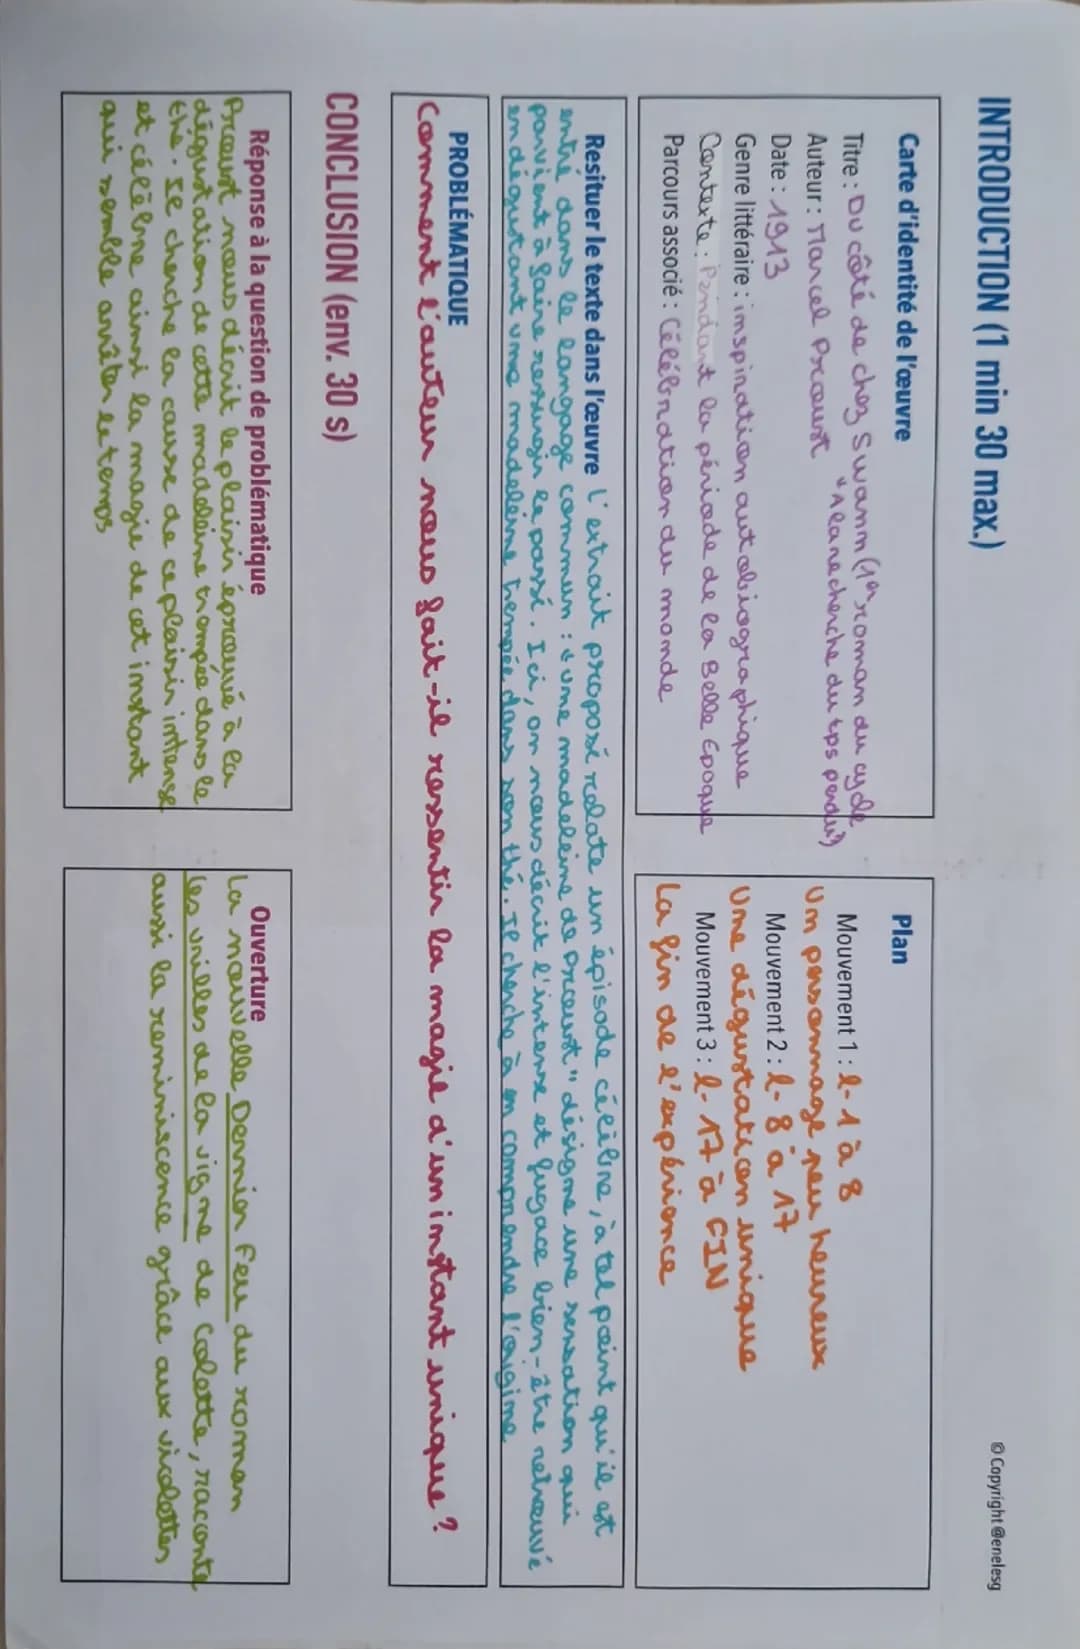 © Copyright @enelesg
INTRODUCTION (1 min 30 max.)
Carte d'identité de l'œuvre
Titre : Du côté de chez Swann (1er roman du cycle
"A la recherche du tps perdu")
Auteur : Marcel Proust
Date : 1913
Genre littéraire : inspiration autobiographique
Contexte : Pendant la période de la Belle Epoque
Parcours associé : Célébration du monde
Plan
Mouvement 1 : l. 1 à 8
Un personnage peu heureux
Mouvement 2 : l. 8 à 17
Une dégustation unique
Mouvement 3 : l. 17 à FIN
La fin de l'expérience
Resituer le texte dans l'œuvre L'extrait proposé relate un épisode célèbre, à tel point qu'il est
entré dans le langage commun : "une madeleine de Proust" désigne une sensation qui
parvient à faire ressurgir le passé. Ici, on nous décrit l'intense et fugace bien-être retrouvé
en dégustant une madeleine trempée dans son thé. Il cherche à en comprendre l'origine
PROBLÉMATIQUE
Comment l'auteur nous fait-il ressentir la magie d'un instant unique ?
CONCLUSION (env. 30 s)
Réponse à la question de problématique
Proust nous décrit le plaisir éprouvé à la
dégustation de cette madeleine trempée dans le
thé. Il cherche la cause de ce plaisir intense
et célèbre ainsi la magie de cet instant
qui semble arrêter le temps
Ouverture
La nouvelle Dernier Feu du roman
Les vrilles de la vigne de Colette, raconte
aussi la reminiscence grâce aux violettes